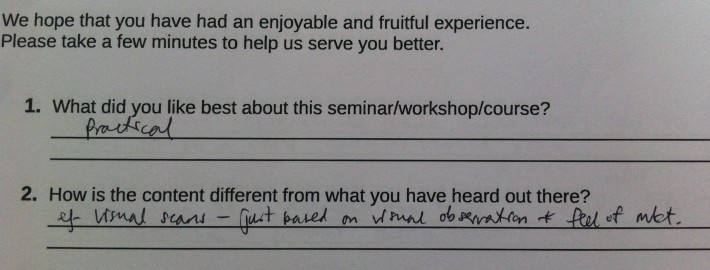 We hope that you have had an enjoyable and fruitful experience.
Please take a few minutes to help us serve you better.
1. What did you like best about this seminar/workshop/course?
Practical
2. How is the content different from what you have heard out there?
visual scans - just based on visual observation & feel of mkt.